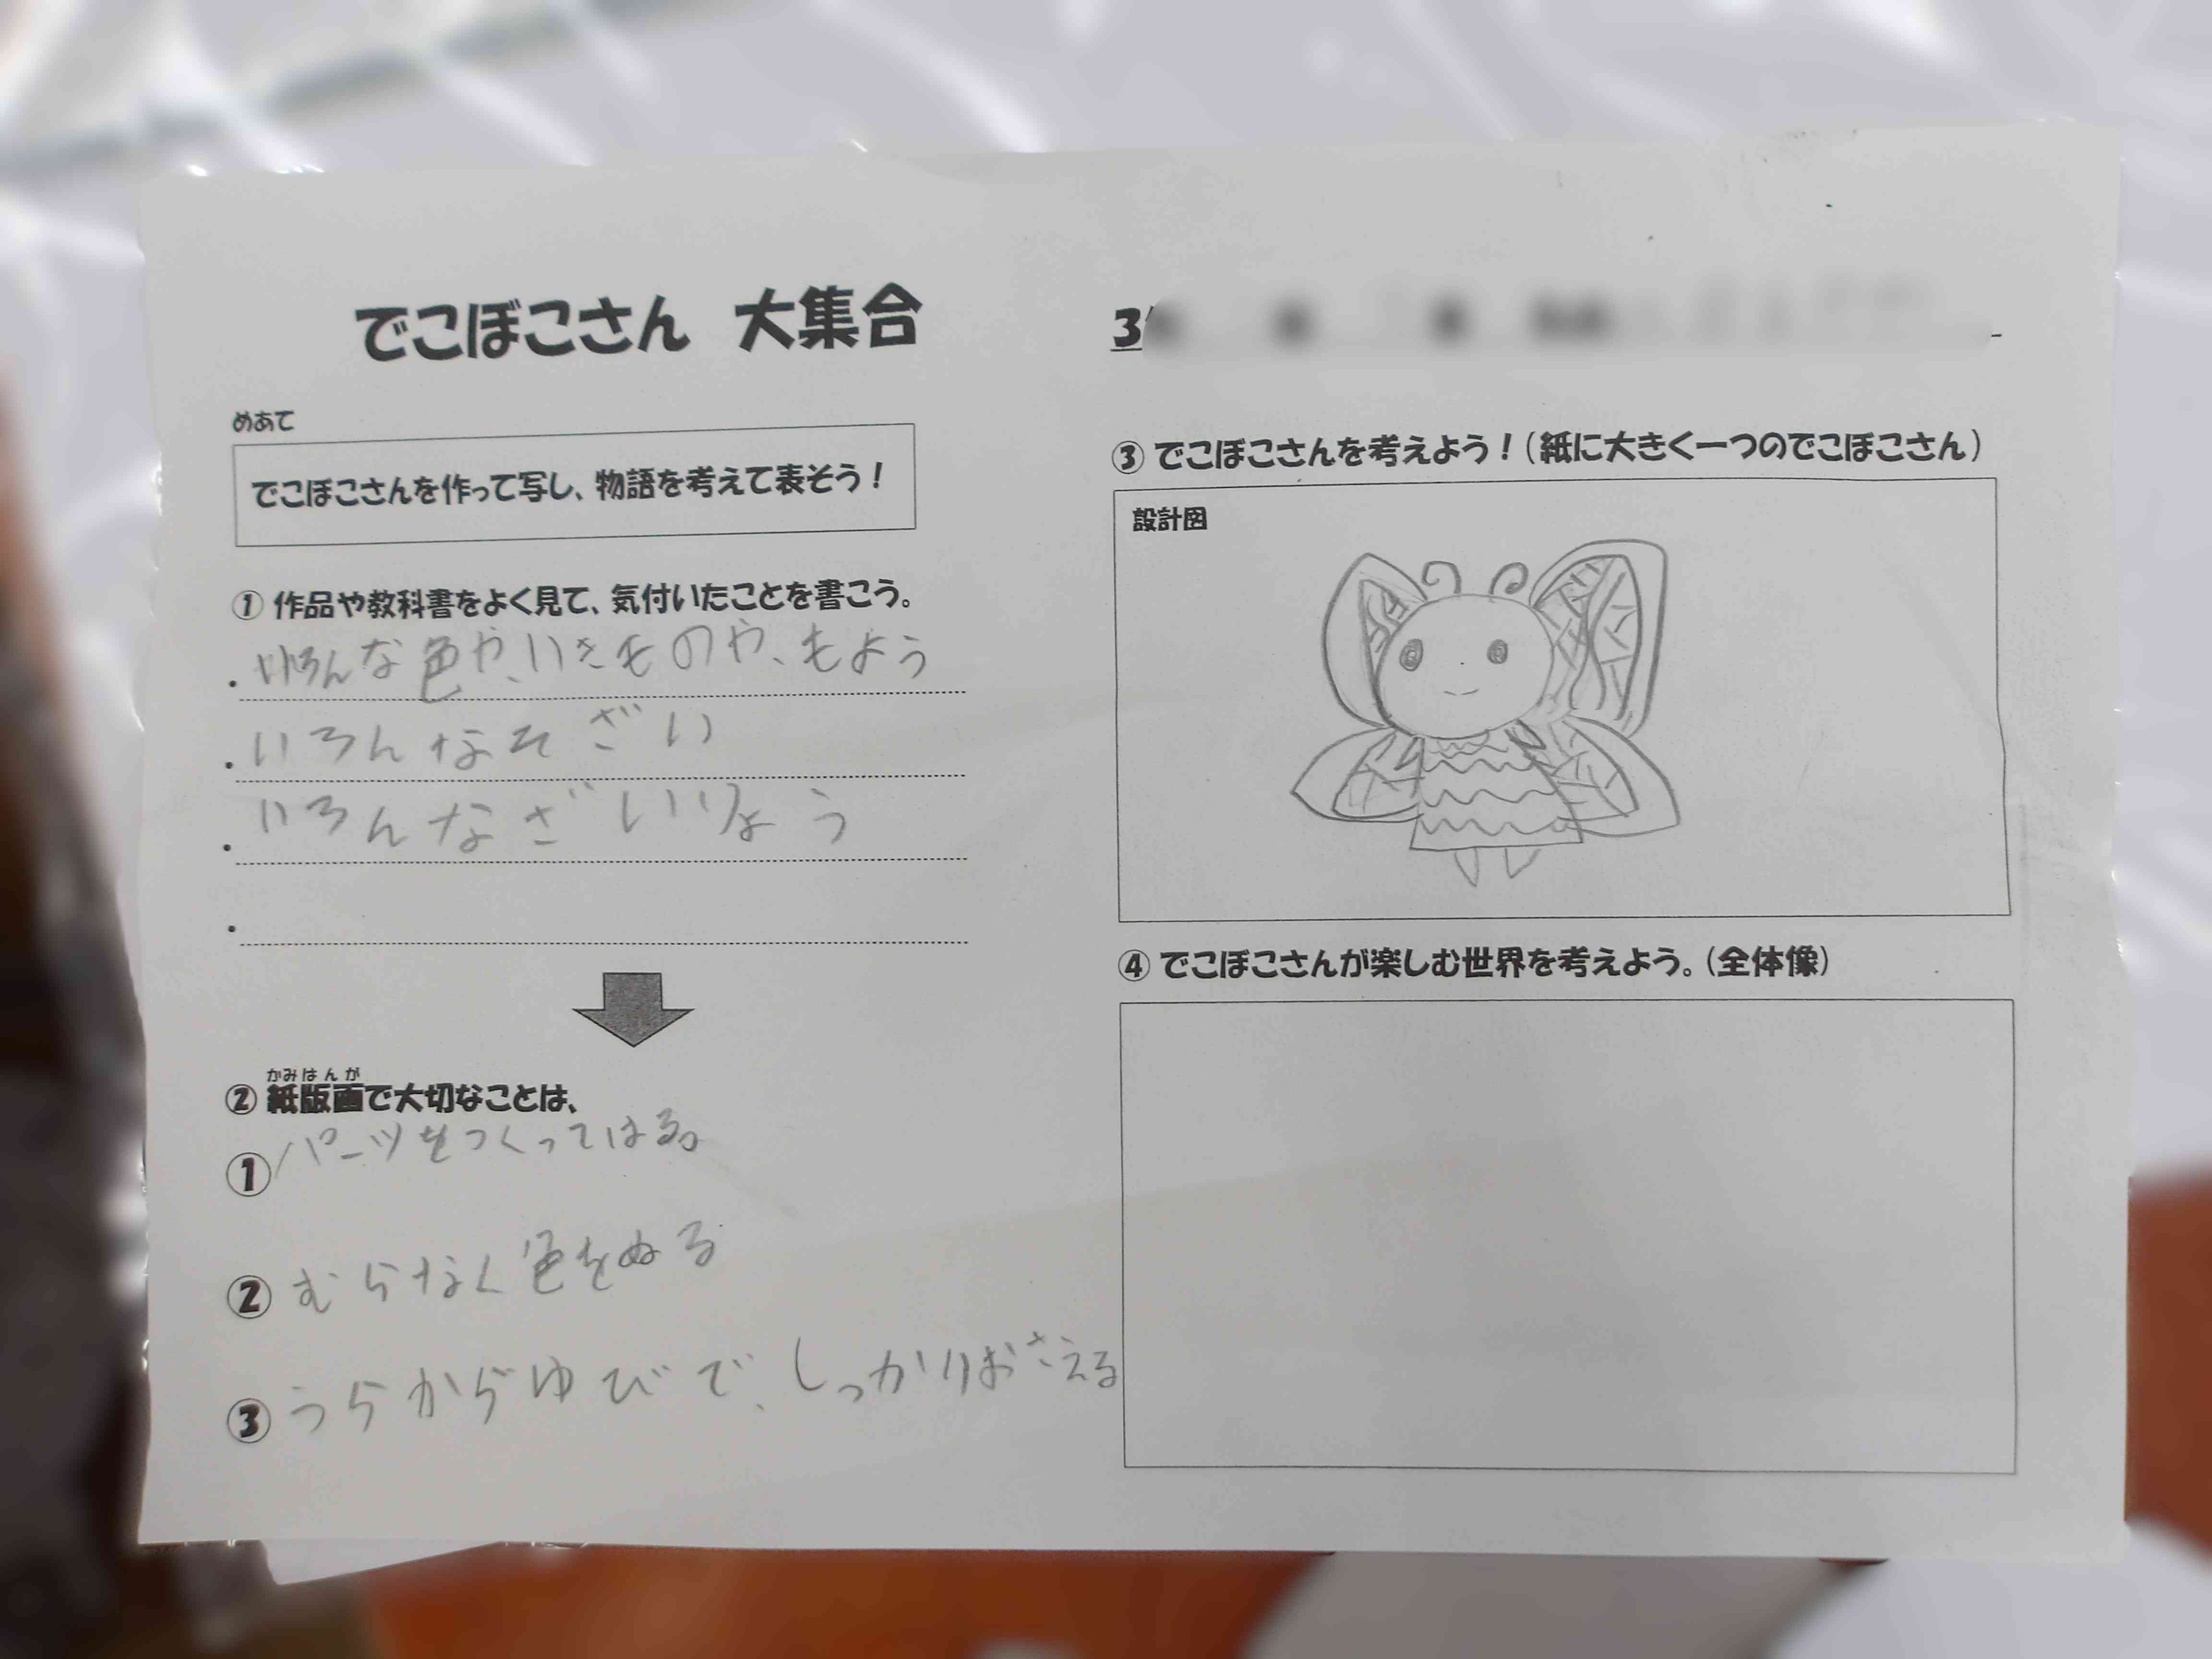 でこぼこさん 大集合
3
めあて
でこぼこさんを作って写し、物語を考えて表そう！
① 作品や教科書をよく見て、気付いたことを書こう。
・いろんな色や、いきものや、もよう
・いろんなそざい
・いろんなざいりょう
・
② 紙版画で大切なことは、
かみはんが
① パーツをつくってはる。
② むらなく色をぬる
③ うらからゆびで、しっかりおさえる
③ でこぼこさんを考えよう！（紙に大きく一つのでこぼこさん）
設計図
④ でこぼこさんが楽しむ世界を考えよう。（全体像）